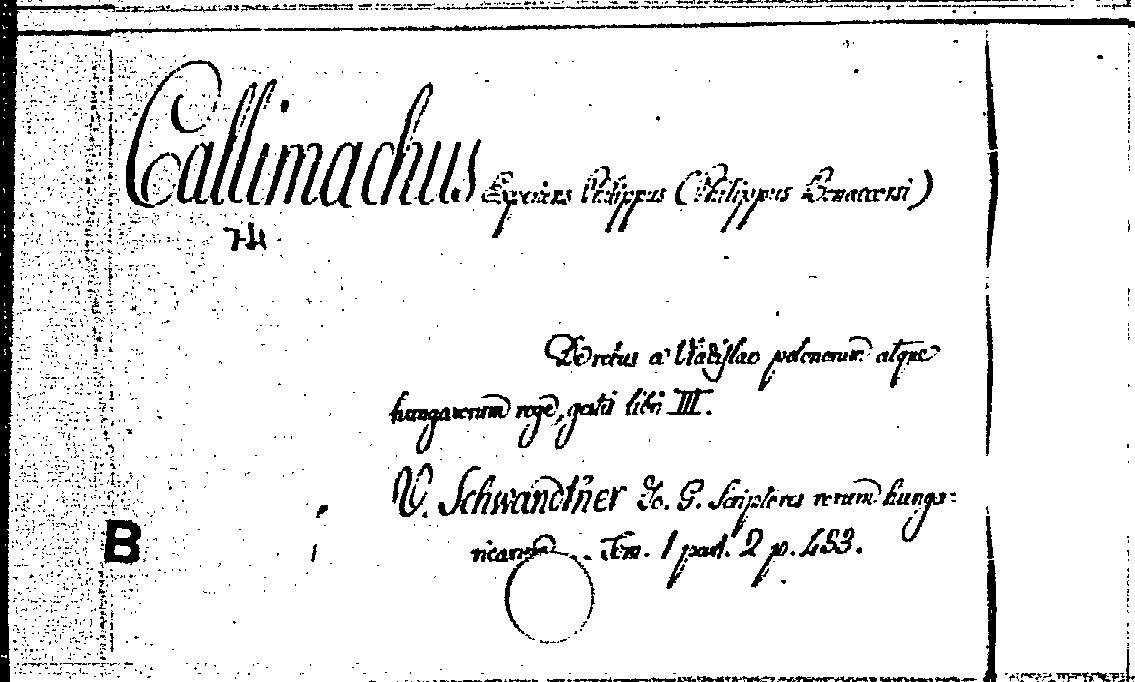 Callimachus Experiens Philippus (Philippus Bonaccorsi)
De rebus a Vladislao polonorum atque
hungarorum rege, gestis libri III.
V. Schwandtner Jo. G. Scriptores rerum hunga-
ricarum ... Tom. 1 pad. 2 p. 433.
B